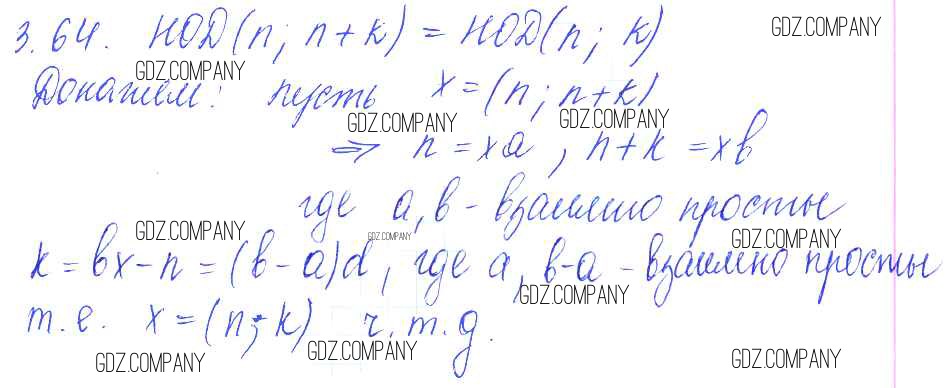 3.64. НОД(n; n+k) = НОД(n; k)
GDZ.COMPANY
GDZ.COMPANY
Докажем: пусть x = (n; n+k)
GDZ.COMPANY
GDZ.COMPANY
⇒ n = xa, n+k = xb
где a, b - взаимно простые
GDZ.COMPANY
GDZ.COMPANY
GDZ.COMPANY
k = bx - n = (b - a)d, где a, b-a - взаимно простые
GDZ.COMPANY
т.е. x = (n; k) ч.т.д.
GDZ.COMPANY
GDZ.COMPANY
GDZ.COMPANY